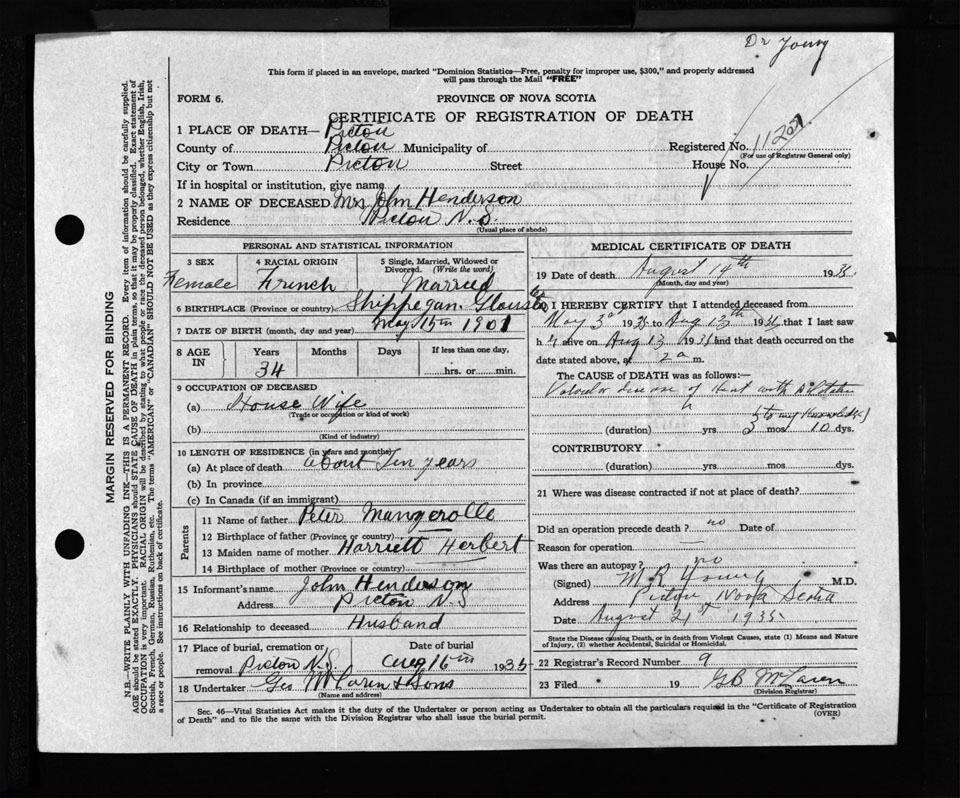 Dr Young
This form if placed in an envelope, marked "Dominion Statistics—Free, penalty for improper use, $300," and properly addressed
will pass through the Mail "FREE"
FORM 6.
PROVINCE OF NOVA SCOTIA
CERTIFICATE OF REGISTRATION OF DEATH
1 PLACE OF DEATH— Picton
County of Picton Municipality of Registered No.
(For use of Registrar General only)
City or Town Picton Street House No.
If in hospital or institution, give name
2 NAME OF DECEASED Mrs John Henderson
Residence Picton N.S.
(Usual place of abode)
PERSONAL AND STATISTICAL INFORMATION
3 SEX Female
4 RACIAL ORIGIN French
5 Single, Married, Widowed or
Divorced. (Write the word)
Married
6 BIRTHPLACE (Province or country) Shippegan
7 DATE OF BIRTH (month, day and year) May 15th 1901
8 AGE IN
Years 34
Months
Days
If less than one day,
hrs. or min.
9 OCCUPATION OF DECEASED
(a) House Wife
(Trade or occupation or kind of work)
(b)
(Kind of industry)
10 LENGTH OF RESIDENCE (in years and months)
(a) At place of death about Ten years
(b) In province
(c) In Canada (if an immigrant)
Parents
11 Name of father Peter Mangerolle
12 Birthplace of father (Province or country)
13 Maiden name of mother Harriett Herbert
14 Birthplace of mother (Province or country)
15 Informant's name John Henderson
Address Picton N.S
16 Relationship to deceased Husband
17 Place of burial, cremation or
removal Picton N.S.
Date of burial
Aug 16th 1935
18 Undertaker Geo McLaren & Sons
(Name and address)
MEDICAL CERTIFICATE OF DEATH
19 Date of death August 14th 1935.
(Month, day and year)
20 I HEREBY CERTIFY that I attended deceased from
May 3rd 1935 to Aug 13th 1935 that I last saw
h er alive on Aug 13 1935 and that death occurred on the
date stated above, at 2 a m.
The CAUSE OF DEATH was as follows:—
Valvular disease of Heart with
(to my Knowledge)
(duration) yrs 3 mos 10 dys.
CONTRIBUTORY
(duration) yrs mos dys.
21 Where was disease contracted if not at place of death?
Did an operation precede death? no Date of
Reason for operation
Was there an autopsy? no
(Signed) M R Young M.D.
Address Picton Nova Scotia
Date August 21st 1935
State the Disease causing Death, or in death from Violent Causes, state (1) Means and Nature
of Injury, (2) whether Accidental, Suicidal or Homicidal.
22 Registrar's Record Number 9
23 Filed 19 GB McLaren
(Division Registrar)
Sec. 46—Vital Statistics Act makes it the duty of the Undertaker or person acting as Undertaker to obtain all the particulars required in the "Certificate of Registration
of Death" and to file the same with the Division Registrar who shall issue the burial permit.
(OVER)
MARGIN RESERVED FOR BINDING
N.B.—WRITE PLAINLY WITH UNFADING INK—THIS IS A PERMANENT RECORD. Every item of information should be carefully supplied.
AGE should be stated EXACTLY. PHYSICIANS should STATE CAUSE OF DEATH in plain terms, so that it may be properly classified. Exact statement of
OCCUPATION is very important. RACIAL ORIGIN will be described by stating to what people or race the deceased person belonged, whether English, Irish,
Scottish, French, German, Russian, Ruthenian, etc. The terms "AMERICAN" or "CANADIAN" SHOULD NOT BE USED as they express citizenship but not
a race or people. See instructions on back of certificate.